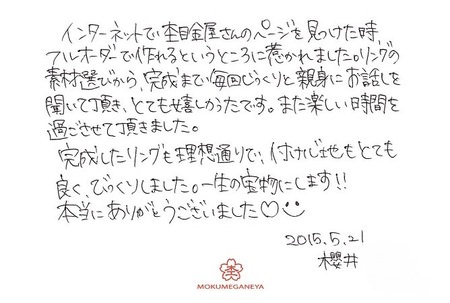 インターネットで杢目金屋さんのページを見つけた時、
フルオーダーで作れるというところに惹かれました。リングの
素材選びから、完成まで毎回じっくりと親身にお話しを
聞いて頂き、とても嬉しかったです。また楽しい時間を
過ごさせて頂きました。
完成したリングも理想通りで、付けじ地もとても
良く、びっくりしました。一生の宝物にします!!
本当にありがとうございました♡
2015.5.21
櫻井
杢
MOKUMEGANEYA